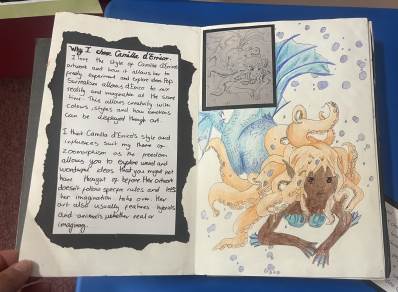 Why I chose Camilla d'Errico.
I love the style of Camilla d'Errico's
artwork and how it allows her to
freely experiment and explore ideas. Pop
Surrealism allows d'Errico to mix
reality and imagination at the same
time. This allows creativity with
colours, styles and how emotions
can be displayed though art.
I that Camilla d'Errico's style and
influences suit my theme of
zoomorphism as the freedom
allows you to explore weird and
wonderful ideas that you might not
have thought of before. Her artwork
doesn't follow specific rules and lets
her imagination take over. Her
art also usually features hybrids
and animals whether real or
imaginary.